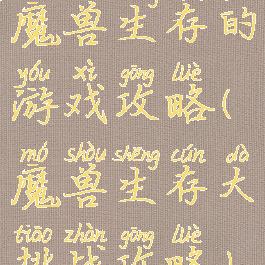 魔兽生存的
yóu xì gōng lüè
游戏攻略(
mó shòu shēng cún dà
魔兽生存大
tiāo zhàn gōng lüè
挑战攻略)